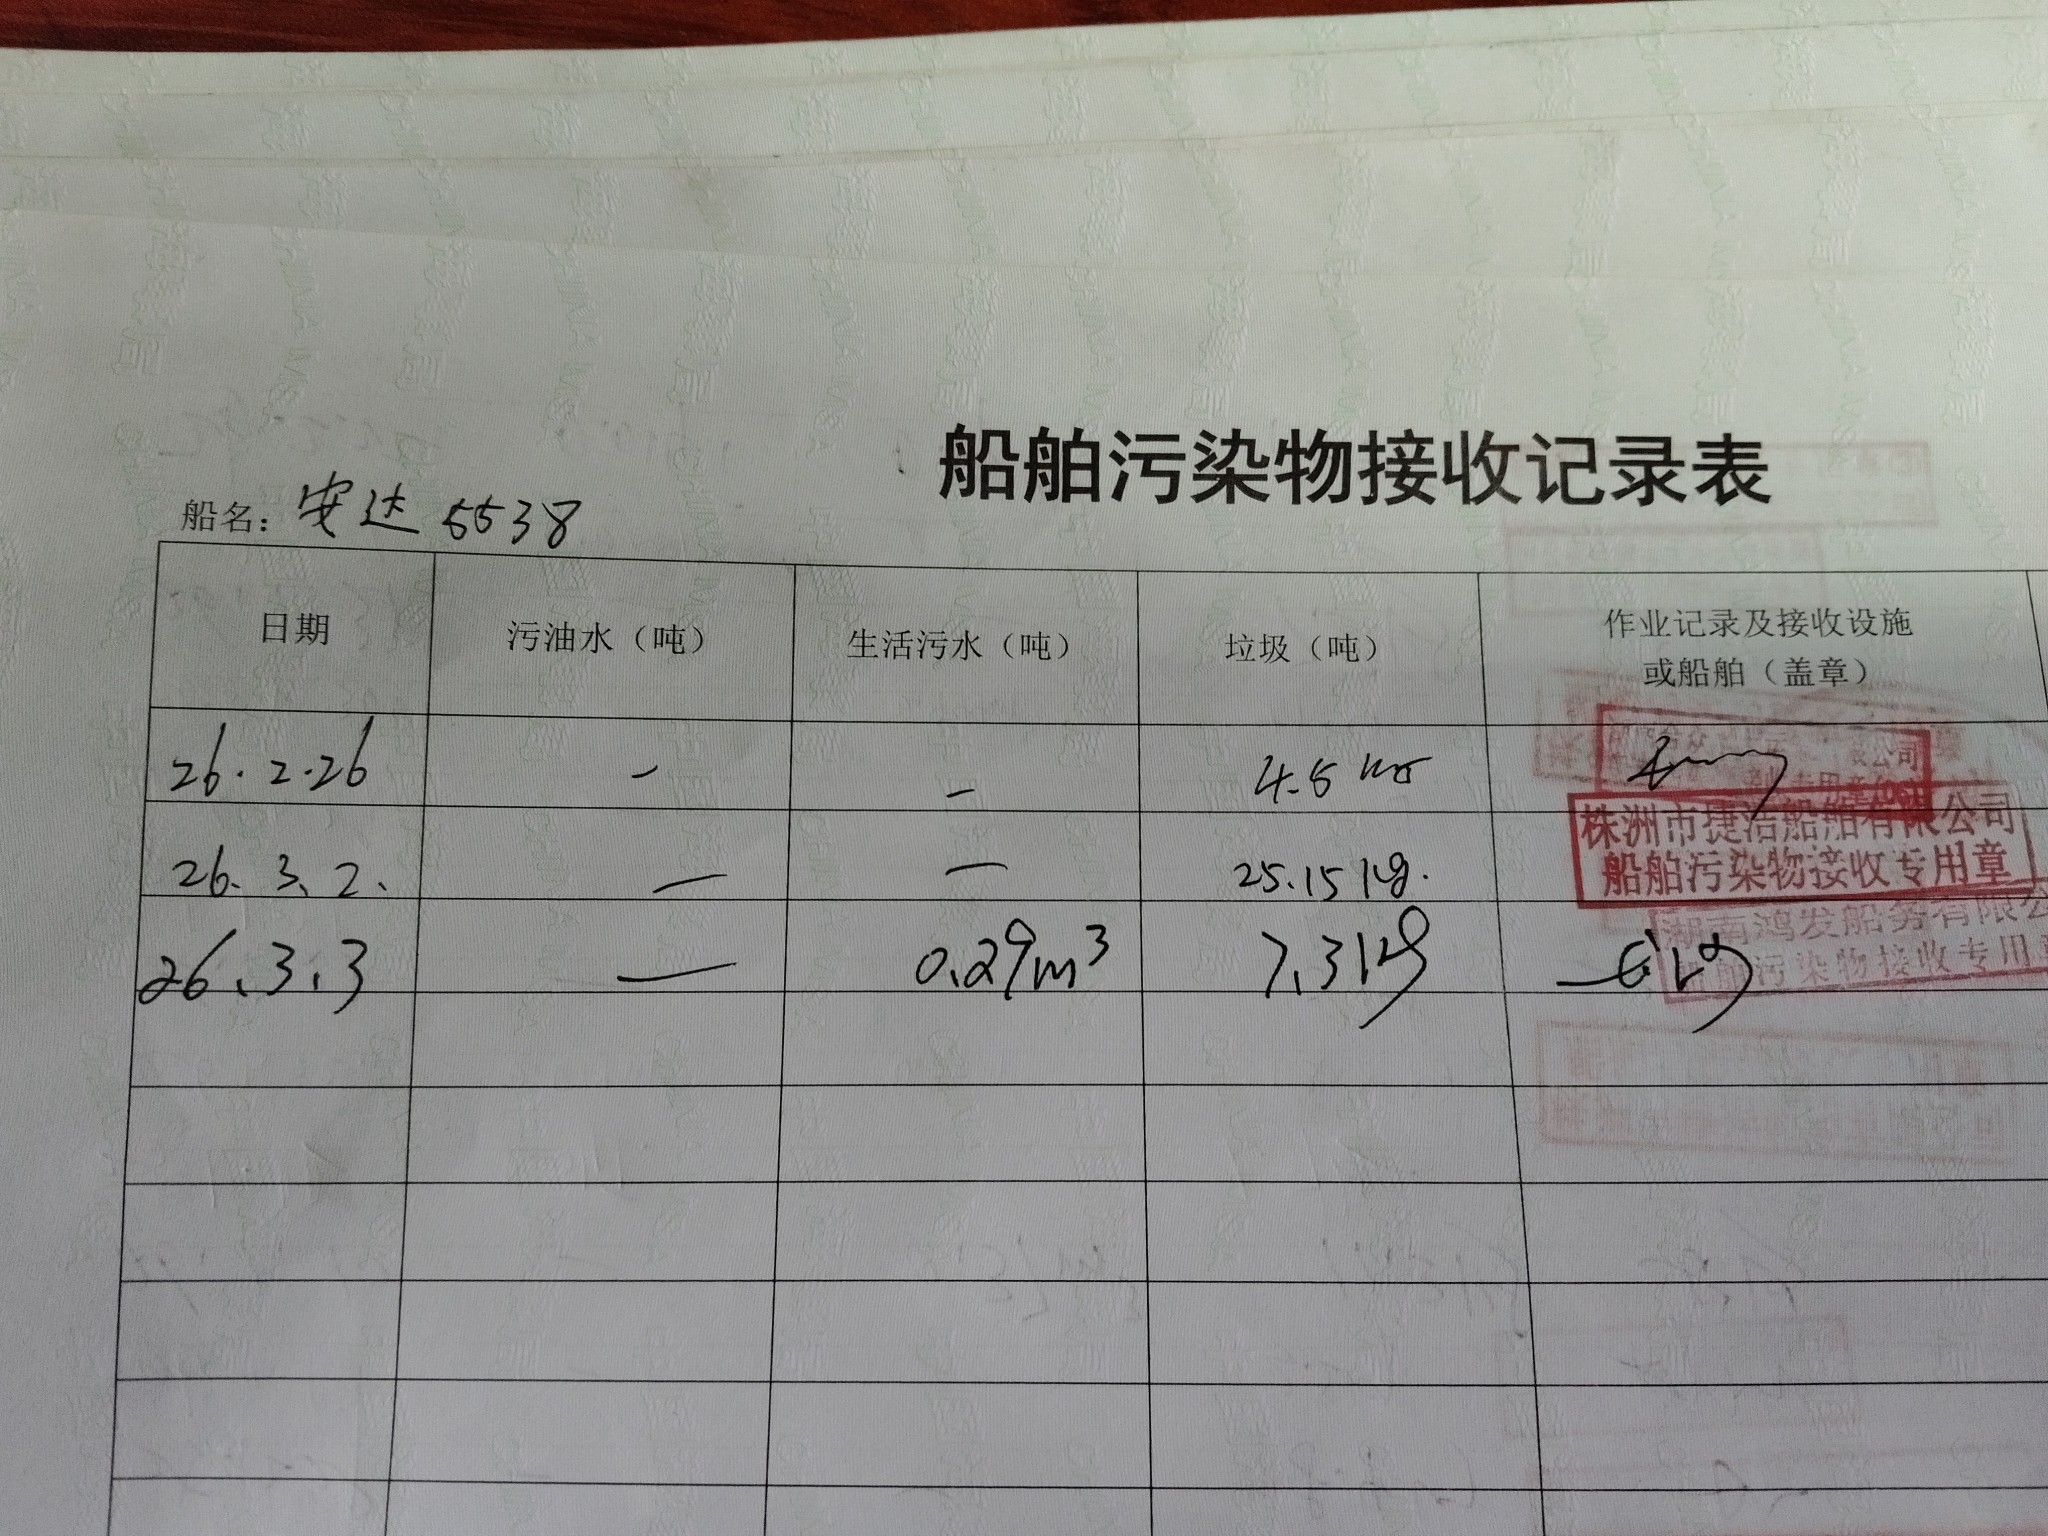 船舶污染物接收记录表
船名：安达 5538
日期 污油水（吨） 生活污水（吨） 垃圾（吨） 作业记录及接收设施
或船舶（盖章）
26.2.26 — — 4.5 kg
公司
26.3.2. — — 25.15 kg.
株洲市捷洁船舶有限公司
船舶污染物接收专用章
26.3.3 — 0.29m³ 7.31kg
湖南鸿发船务有限公
船舶污染物接收专用章